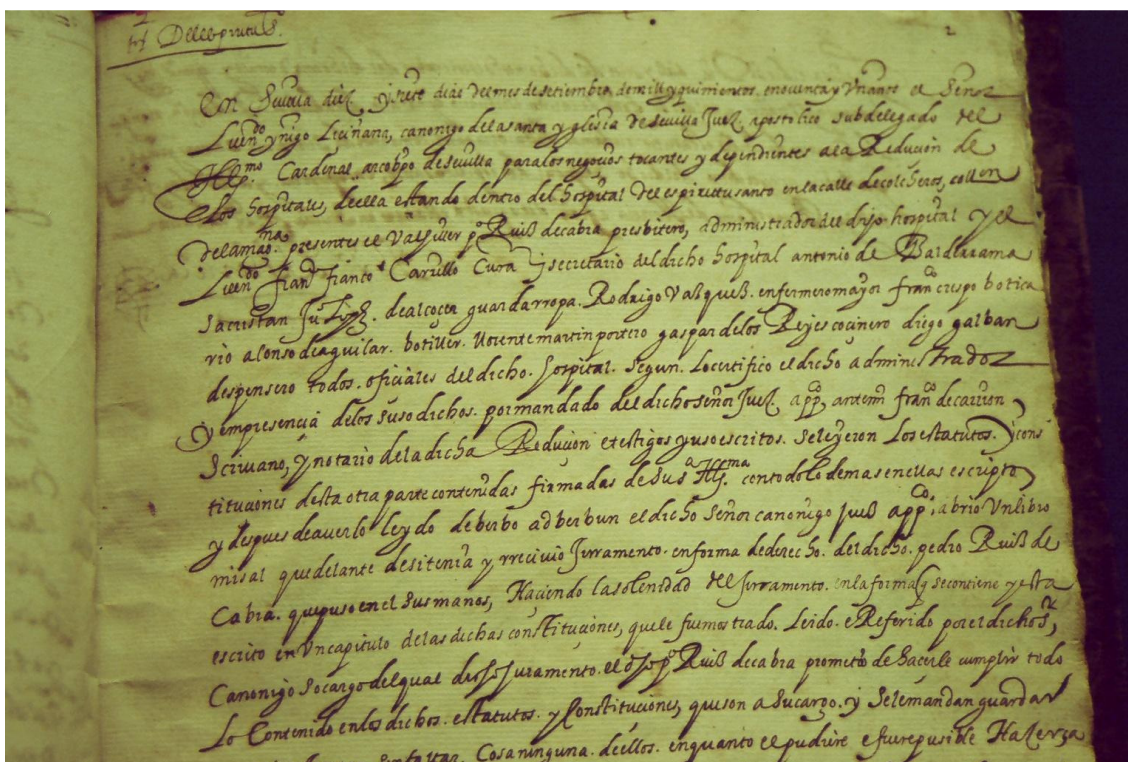 2
En Sevilla diez y siete dias del mes de setiembre de mill y quinientos e noventa y un años el Señor
Licendo yñigo Leciñana, canonigo de la santa yglesia de sevilla Juez apostolico subdelegado del
Illmo Cardenal arcobpo de sevilla para los negocios tocantes y dependientes a la Reducion de
Los hospitales, de ella estando dentro del hospital del espiritu santo en la calle de colcheros, collon
de la mag.na presentes el po Ruiz de cabra presbitero, administrador del dicho hospital y el
Licendo franco Carrillo Cura y secretario del dicho hospital antonio de Balderrama
sacristan Ju.o Lopez. de alcocer guardarropa. Rodrigo Vasquez. enfermero mayor fran crespo botica
rio alonso de aguilar. botiller. Vicente martin portero gaspar de los Reyes cocinero diego galban
despensero todos. oficiales del dicho. hospital. segun. Lo certifico el dicho administrador
y en presencia de los suso dichos. por mandado del dicho señor Juez. appco, ante mi franco de carrion
Scrivano, y notario de la dicha Reducion e testigos yuso escritos. se leyeron Los estatutos. y cons
tituciones desta otra parte contenidas firmadas de su sa Illma con todo lo demas en ellas escripto
y despues de averlo leydo de berbo ad berbun el dicho señor canonigo juez appco, abrio Un libro
misal que delante de si tenia y rrecivio Juramento. en forma de derecho. del dicho. pedro Ruiz de
Cabra. que puso en el sus manos, Haciendo la solenidad del juramento. en la forma q se contiene y esta
escrito en Un capitulo de las dichas constituciones, que le fue mostrado. Leido. e Referido por el dicho sr,
Canonigo so cargo del qual dicho juramento. el dicho po Ruiz de cabra prometio de hacerle cumplir todo
Lo Contenido en los dichos. estatutos. y Constituciones, que son a su cargo. y se le mandan guardar
sin faltar. Cosa ninguna. de ellos. en quanto el pudiere e fuere pusible